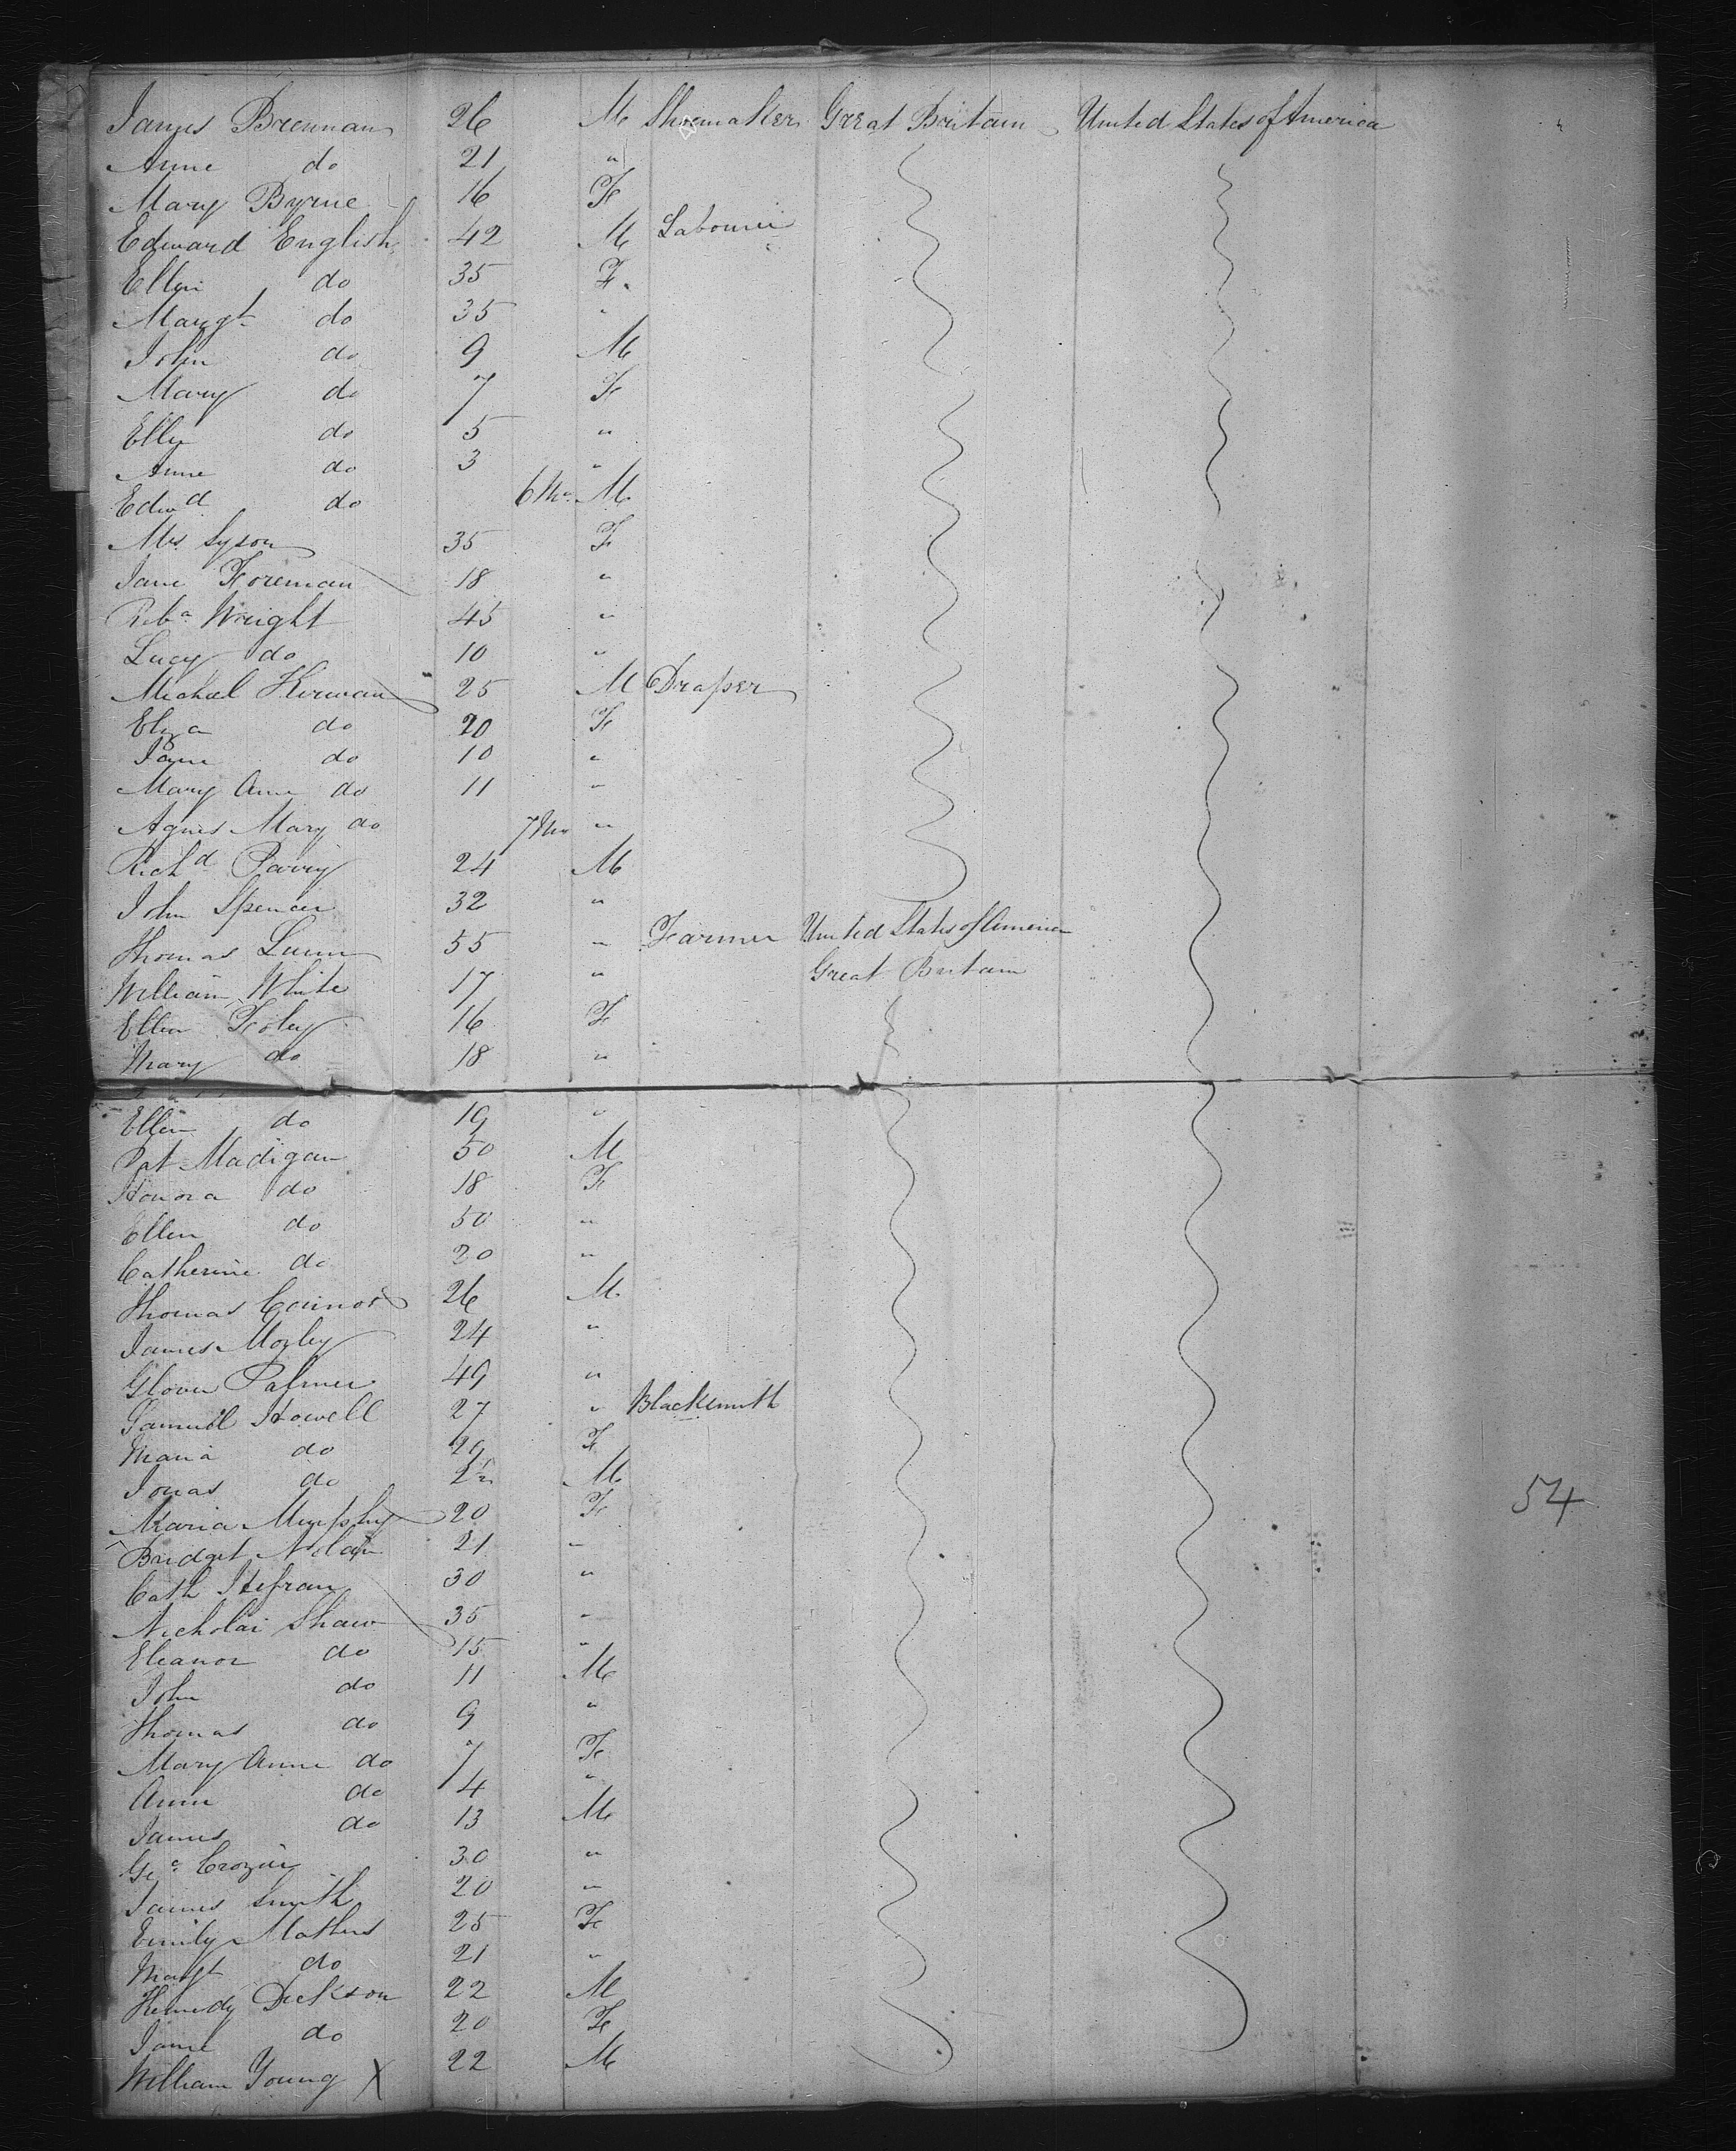 James Brennan 26 M Shoemaker Great Britain United States of America
Anne do 21 "
Mary Byrne 16 F
Edward English 42 M Labourer
Ellen do 35 F
Margt do 35 "
John do 9 M
Mary do 7 F
Ellen do 5 "
Anne do 3 "
Edwd do 6 Mo M
Mrs Lyson 35 F
Jane Foreman 18 "
Reba Wright 45 "
Lucy do 10 "
Michael Kirwan 25 M Draper
Eliza do 20 F
Jane do 10 "
Mary Anne do 11 "
Agnes Mary do 7 Mo "
Richd Parry 24 M
John Spencer 32 "
Thomas Lunn 55 " Farmer United States of America
William White 17 " Great Britain
Ellen Foley 16 F
Mary do 18 "
Ellen do 19 "
Pat Madigan 50 M
Honora do 18 F
Ellen do 50 "
Catherine do 20 "
Thomas Connor 26 M
James Morley 24 "
Glover Palmer 49 "
Samuel Howell 27 " Blacksmith
Maria do 29 F
Jonas do 2 M
Maria Murphy 20 F
Bridget Nolan 21 "
Cath 30 "
Nicholas Shaw 35 "
Eleanor do 15 "
John do 11 M
Thomas do 9 "
Mary Anne do 7 F
Anne do 4 "
James do 13 M
Geo Crozier 30 "
James Smith 20 "
Emily Mathers 25 F
Margt do 21 "
Kennedy Dickson 22 M
Jane do 20 F
William Young X 22 M
54